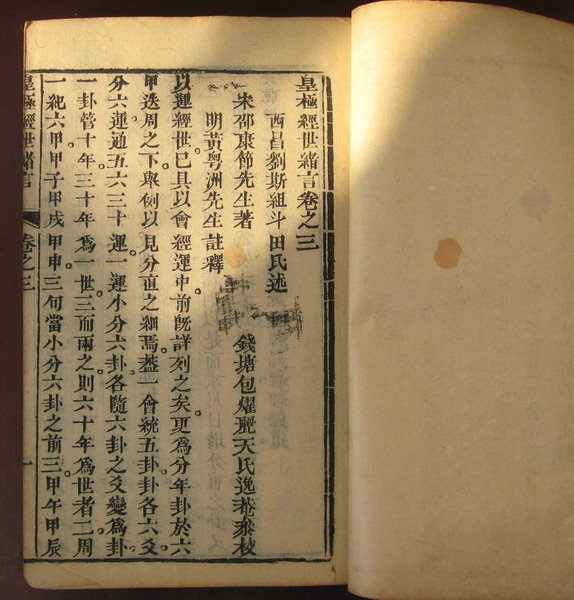 皇極經世緒言卷之三
西昌劉斯組斗田氏述
宋邵康節先生著 錢塘包燿麗天氏逸菴叅校
明黃粤洲先生註釋
以運經世已具以會經運中前旣詳列之矣更爲分年卦於六
甲迭周之下與例以見分直之綱焉葢一會統五卦卦各六爻
分六運通五六三十運一運小分六卦各隨六卦之爻變爲卦
一卦管十年三十年爲一世三而兩之則六十年爲世者二周
一紀六甲甲子甲戌甲申三旬當小分六卦之前三甲午甲辰
皇極經世緒言 卷之三 一